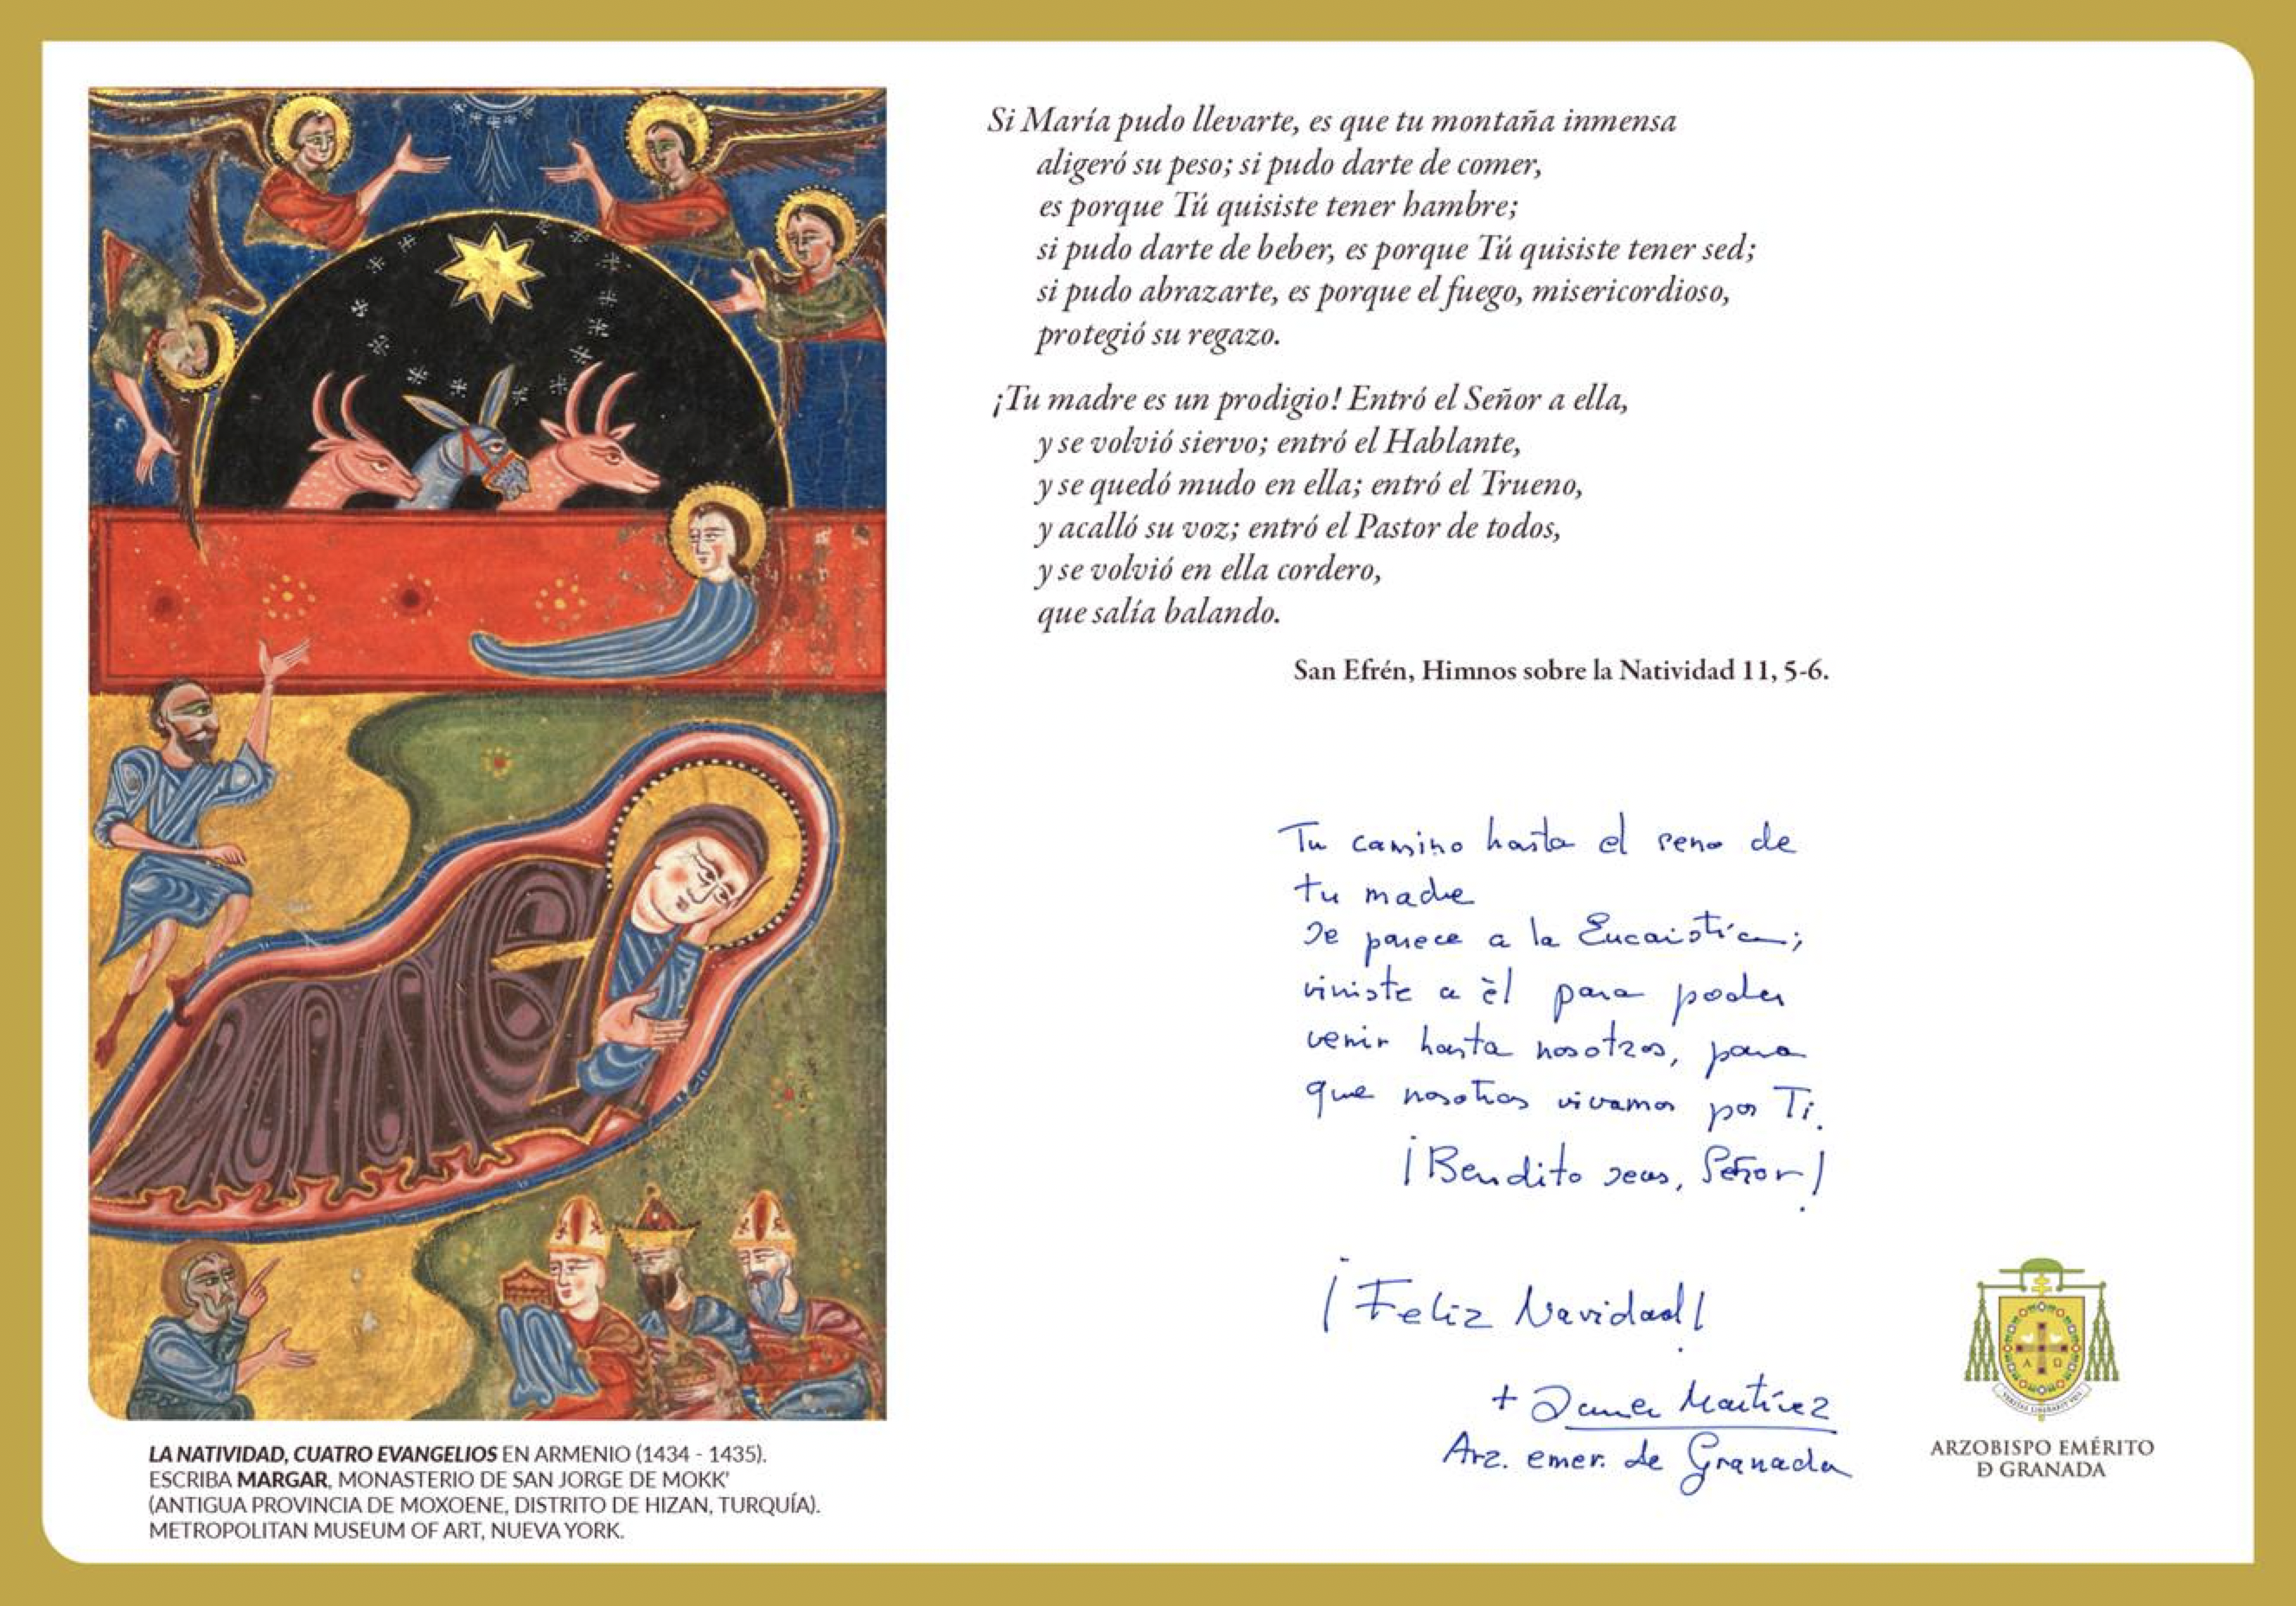 Si María pudo llevarte, es que tu montaña inmensa
aligeró su peso; si pudo darte de comer,
es porque Tú quisiste tener hambre;
si pudo darte de beber, es porque Tú quisiste tener sed;
si pudo abrazarte, es porque el fuego, misericordioso,
protegió su regazo.
¡Tu madre es un prodigio! Entró el Señor a ella,
y se volvió siervo; entró el Hablante,
y se quedó mudo en ella; entró el Trueno,
y acalló su voz; entró el Pastor de todos,
y se volvió en ella cordero,
que salía balando.
San Efrén, Himnos sobre la Natividad 11, 5-6.
Tu camino hasta el seno de
tu madre
se parece a la Eucaristía;
viniste a èl para poder
venir hasta nosotros, para
que nosotros vivamos por Ti.
¡Bendito seas, Señor!
¡Feliz Navidad!
+ Javier Martínez
Arz. emer. de Granada
ARZOBISPO EMÉRITO
D GRANADA
A Ω
LA NATIVIDAD, CUATRO EVANGELIOS EN ARMENIO (1434 - 1435).
ESCRIBA MARGAR, MONASTERIO DE SAN JORGE DE MOKK'
(ANTIGUA PROVINCIA DE MOXOENE, DISTRITO DE HIZAN, TURQUÍA).
METROPOLITAN MUSEUM OF ART, NUEVA YORK.